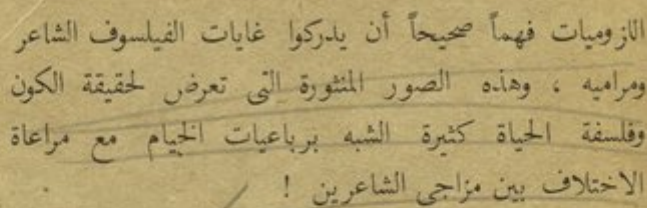 اللزوميات فهماً صحيحاً أن يدركوا غايات الفيلسوف الشاعر
ومراميه ، وهذه الصور المنثورة التى تعرض لحقيقة الكون
وفلسفة الحياة كثيرة الشبه برباعيات الخيام مع مراعاة
الاختلاف بين مزاجى الشاعرين !